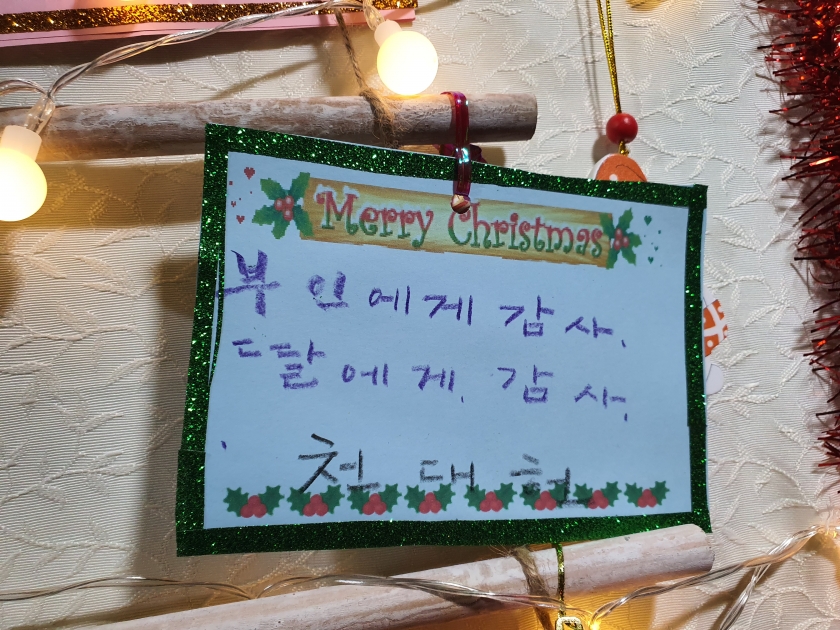 Merry Christmas
부인에게 감사.
딸에게. 감사.
천대현